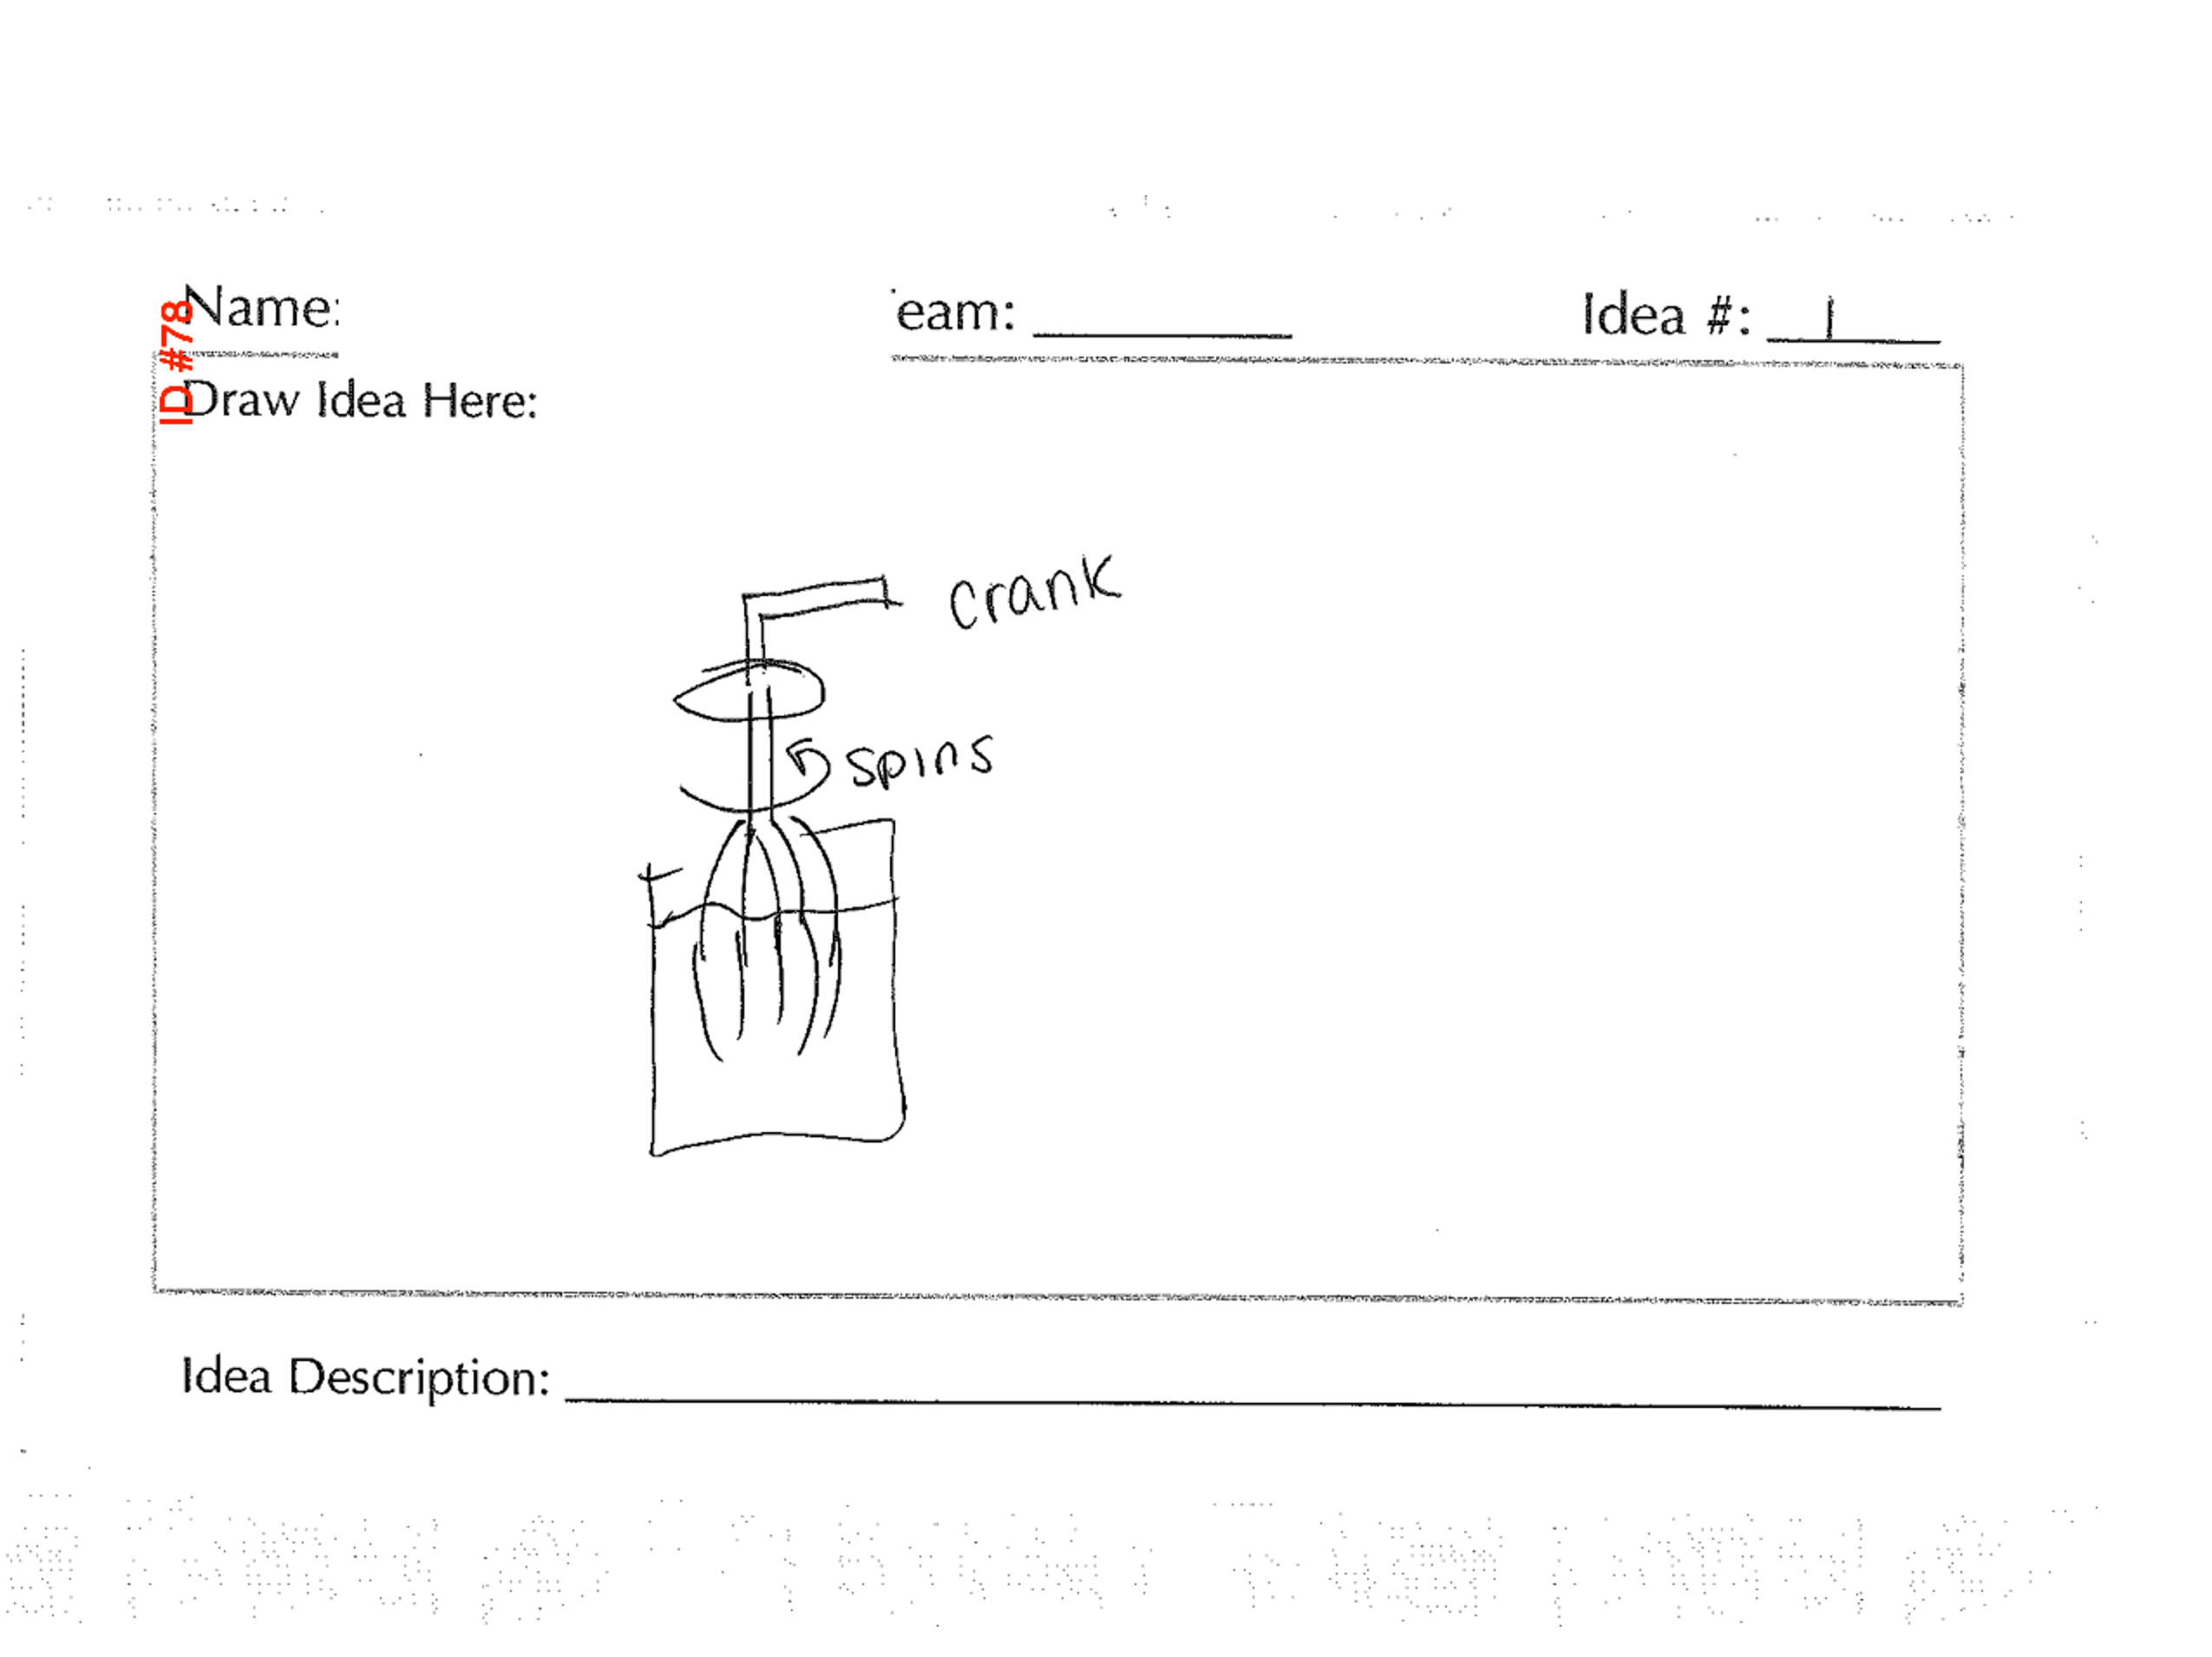 Name:
eam:
Idea #: 1
ID #78
Draw Idea Here:
crank
spins
Idea Description: